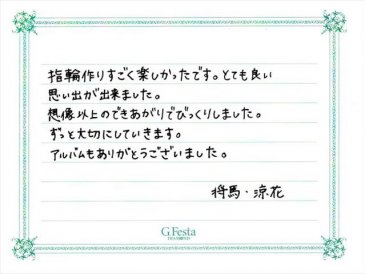 指輪作りすごく楽しかったです。とても良い
思い出が出来ました。
想像以上のできあがりでびっくりしました。
ずっと大切にしていきます。
アルバムもありがとうございました。
将馬・涼花
G.Festa
DIAMOND